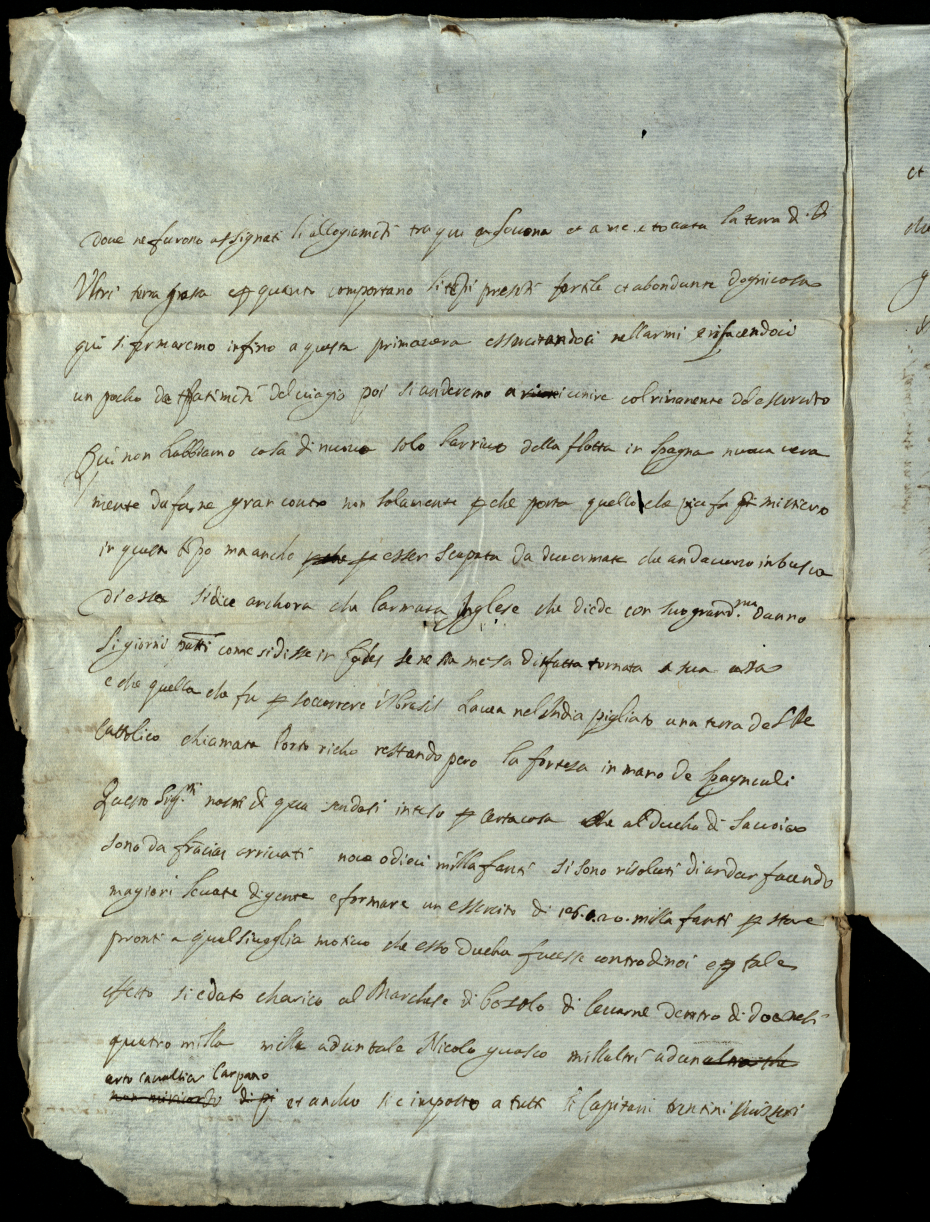 Doue ne furono assignati li allogiamēti tra qui e Sauona et a me e tocata la terra di
Vltri terra grosa e p quanto comportano li tēpi presēti fertile et abondante dognicosa
qui si fermaremo infino a questa primauera essercitandoci nellarmi e rifacendoci
un pocho da patimēti del uiagio poi si anderemo a riunire col rimanente del esercito
Qui non habbiamo cosa di nuouo solo larriuo della flotta in spagna nuoua uera
mente da farne gran conto non solamente p che porta quello che fa mistiero
in questo tēpo ma ancho p esser scapata da due armate che andauano in busca
di essa si dice anchora che larmata Inglese che diede con suo grand.mo danno
li giorni passati come si disse in se ne sia mesa disfatta tornata a sua casa
e che quella che fu p soccorrere il brasil hauea nel India pigliato una terra del Re
Cattolico chiamata Porto richo restando pero la fortesa in mano de Spagnuoli
Questi Sig.ri nostri di qua hendosi inteso p certa cosa che al Ducha di Sauoia
sono da frācia arriuati noue o dieci milla fanti si sono risoluti di andar facendo
magiori leuate di gente e formare un essercito di 16. o 20. milla fanti p stare
pronti a qual siuoglia motiuo che esso Ducha facesse contro di noi e p tale
effetto si e dato charico al Marchese di Bosolo di leuarne dentro di
quatro milla mille ad un tale Nicolo guasco mill altri ad un
cauallier Carpano
et ancho si e imposto a tutti li Capitani trentini
et